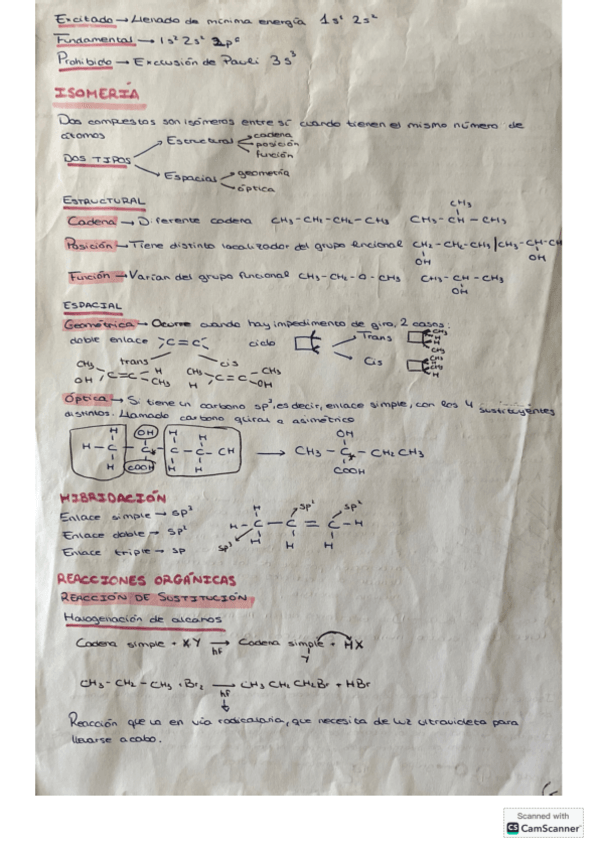 Excitado → Llenado de mínima energía 1s¹ 2s²
Fundamental → 1s² 2s² 2p⁶
Prohibido → Exclusión de Pauli 3s³
ISOMERÍA
Dos compuestos son isómeros entre sí cuando tienen el mismo número de
átomos
DOS TIPOS
Estructural
cadena
posición
función
Espacias
geometría
óptica
ESTRUCTURAL
Cadena → Diferente cadena CH₃-CH₂-CH₂-CH₃ CH₃-CH-CH₃
CH₃
Posición → Tiene distinto localizador del grupo funcional CH₂-CH₂-CH₃ | CH₃-CH-CH
OH OH
Función → Varían del grupo funcional CH₃-CH₂-O-CH₃ CH₃-CH-CH₃
OH
ESPACIAL
Geométrica → Ocurre cuando hay impedimento de giro, 2 casos:
doble enlace >C=C< ciclo
Trans
Cis
trans cis
CH₃ OH C=C H CH₃
CH₃ H C=C CH₃ OH
Óptica → Si tiene un carbono sp³, es decir, enlace simple, con los 4 sustituyentes
distintos. Llamado carbono quiral o asimétrico
H OH H H
H-C-C-C-C-CH → CH₃-C*-CH₂CH₃
H COOH H H
OH
COOH
HIBRIDACIÓN
Enlace simple → sp³
Enlace doble → sp²
Enlace triple → sp
H sp² sp²
H-C-C=C-H
sp³ H H H
REACCIONES ORGÁNICAS
REACCIÓN DE SUSTITUCIÓN
Halogenación de alcanos
Cadena simple + XY → Cadena simple + HX
hf Y
CH₃-CH₂-CH₃ + Br₂ → CH₃CH₂CH₂Br + HBr
hf
Reacción que va en vía radicalaria, que necesita de luz ultravioleta para
llevarse a cabo.
Scanned with
CS CamScanner